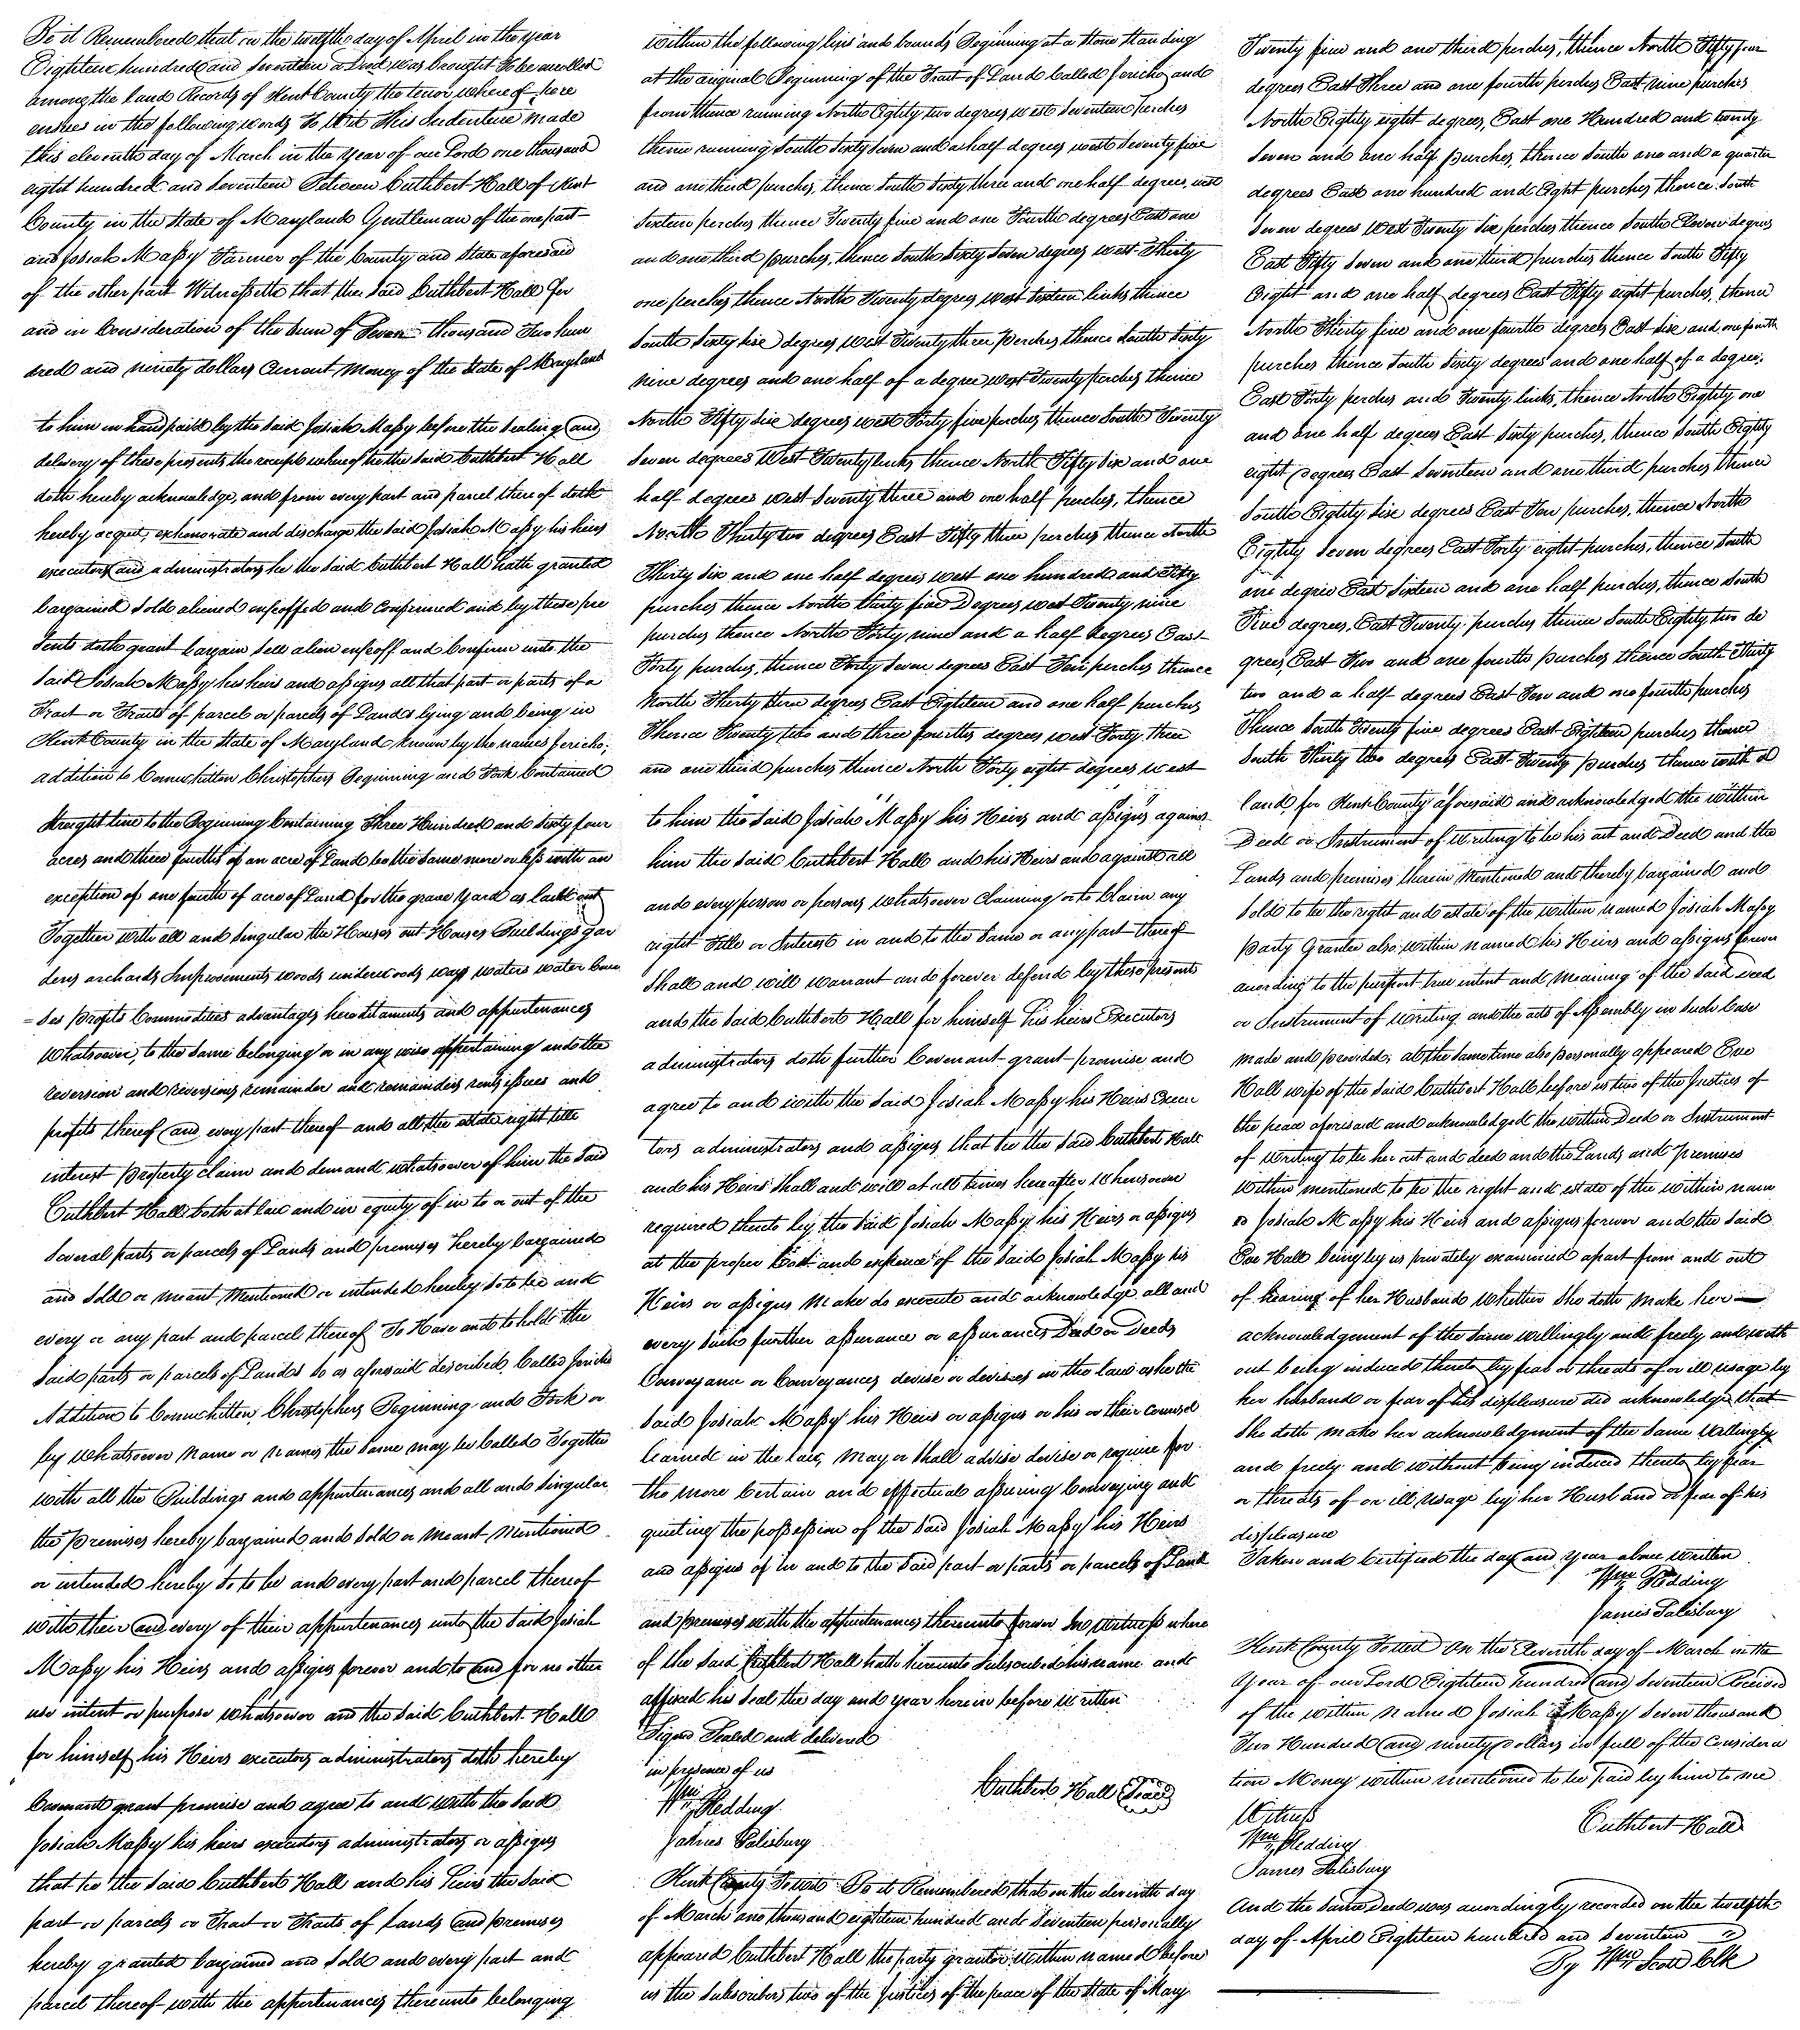 Be it Remembered that on the twelfth day of April in the year
Eighteen hundred and Seventeen a Deed was brought to be enrolled
among the Land Records of Kent County the tenor whereof here
ensues in the following words To Wit This Indenture made
this eleventh day of March in the year of our Lord one thousand
eight hundred and Seventeen Between Cuthbert Hall of Kent
County in the State of Maryland Gentleman of the one part
and Josiah Massy Farmer of the County and State aforesaid
of the other part Witnesseth that the said Cuthbert Hall for
and in Consideration of the sum of Seven thousand Two hun
dred and ninety dollars Current Money of the State of Maryland
to him in hand paid by the said Josiah Massy before the sealing and
delivery of these presents the receipt whereof he the said Cuthbert Hall
doth hereby acknowledge, and from every part and parcel thereof doth
hereby acquit, exhonorate and discharge the said Josiah Massy his heirs
executors and administrators he the said Cuthbert Hall hath granted
bargained Sold aliened enfeoffed and Confirmed and by these pre
sents doth grant bargain Sell alien enfeoff and Confirm unto the
said Josiah Massy his heirs and assigns all that part or parts of a
Tract or Tracts of parcel or parcels of Land lying and being in
Kent County in the State of Maryland known by the names Jericho,
addition to Connichitten Christophers Beginning and Fork Contained
within the following lines and bounds Beginning at a Stone standing
at the original Beginning of the Tract of Land Called Jericho, and
from thence running North Eighty two degrees west Seventeen Perches
thence running South Sixty Seven and a half degrees west Seventy five
and one third perches, thence South Sixty three and one half degrees, west
Sixteen perches thence Twenty five and one Fourth degrees East one
and one third perches, thence South Sixty Seven degrees west Thirty
one perches thence North Twenty degrees, west Sixteen links thence
South Sixty Six degrees, west Twenty three Perches thence South Sixty
nine degrees and one half of a degree west Twenty perches thence
North Fifty Six degrees west Forty five perches thence South Twenty
Seven degrees West Twenty links, thence North Fifty Six and one
half degrees west Seventy three and one half perches, thence
North Thirty two degrees East Fifty three perches thence North
Thirty Six and one half degrees west one hundred and Fifty
perches thence North thirty five Degrees west Twenty nine
perches thence North Forty nine and a half degrees East
Forty perches, thence Forty Seven degrees East Four perches thence
North Thirty three degrees East Eighteen and one half perches
Thence Twenty two and three fourths degrees west Forty three
and one third perches thence North Forty eight degrees west
Twenty five and one third perches, thence North Fifty four
degrees East Three and one fourth perches East nine perches
North Eighty eight degrees, East one Hundred and twenty
Seven and one half perches, thence South one and a quarter
degrees East one hundred and Eight perches thence South
Seven degrees West Twenty Six perches thence South Eleven degrees
East Fifty Seven and one third perches thence South Fifty
Eight and one half degrees East Fifty eight perches, thence
North Thirty five and one fourth degrees East Six and one fourth
perches thence South Sixty degrees and one half of a degree,
East Forty perches and Twenty links, thence North Eighty one
and one half degrees East Sixty perches, thence South Eighty
eight degrees East Seventeen and one third perches thence
South Eighty Six degrees East Ten perches, thence North
Eighty Seven degrees East Forty eight perches, thence South
one degree East Sixteen and one half perches, thence South
Five degrees, East Twenty perches thence South Eighty two de
grees, East Two and one fourth perches thence South Thirty
two and a half degrees East Ten and one fourth perches
Thence South Twenty five degrees East Eighteen perches thence
South Thirty two degrees East Twenty perches thence with a
straight line to the Beginning Containing Three Hundred and Sixty four
acres and three fourths of an acre of Land be the same more or less with an
exception of one fourth of acre of Land for the grave yard as laid out
Together with all and singular the Houses out Houses Buildings gar
dens orchards Improvements woods underwoods ways waters water Cour
=ses profits Commodities advantages hereditaments and appurtenances
Whatsoever, to the same belonging or in any wise appertaining and the
reversion and reversions remainder and remainders rents issues and
profits thereof and every part thereof and all the estate right title
interest property claim and demand whatsoever of him the said
Cuthbert Hall both at law and in equity of in to or out of the
several parts or parcels of Lands and premises hereby bargained
and Sold or meant Mentioned or intended hereby so to be and
every or any part and parcel thereof To Have and to hold the
said parts or parcels of Lands so as aforesaid described Called Jericho
Addition to Connichitten, Christophers Beginning and Fork or
by whatsoever name or names the same may be Called Together
with all the Buildings and appurtenances and all and Singular
the premises hereby bargained and Sold or meant Mentioned
or intended hereby so to be and every part and parcel thereof
with their and every of their appurtenances unto the said Josiah
Massy his Heirs and assigns forever and to and for no other
use intent or purpose whatsoever and the said Cuthbert Hall
for himself his Heirs executors administrators doth hereby
Covenant grant promise and agree to and with the said
Josiah Massy his heirs executors administrators or assigns
that he the said Cuthbert Hall and his Heirs the said
part or parcels or Tract or Tracts of Lands and premises
hereby granted bargained and Sold and every part and
parcel thereof with the appertenances thereunto belonging
to him the said Josiah Massy his Heirs and assigns against
him the said Cuthbert Hall and his Heirs and against all
and every person or persons whatsoever claiming or to Claim any
right Title or Interest in and to the same or any part thereof
Shall and will warrant and forever defend by these presents
and the said Cuthbert Hall for himself his heirs Executors
administrators doth further Covenant grant promise and
agree to and with the said Josiah Massy his Heirs Execu
tors administrators and assigns, that he the said Cuthbert Hall
and his Heirs Shall and will at all times hereafter Whensoever
required thereto by the said Josiah Massy his Heirs or assigns
at the proper Cost and expence of the said Josiah Massy his
Heirs or assigns Make do execute and acknowledge all and
every such further assurance or assurances Deed or Deeds
Conveyance or Conveyances devise or devises in the law as he the
said Josiah Massy his Heirs or assigns or his or their counsel
learned in the law, may or Shall advise devise or require for
the more Certain and effectual assuring Conveying and
quieting the possession of the said Josiah Massy his Heirs
and assigns of in and to the said part or parts or parcels of Land
and premises with the appurtenances thereunto forever In witness where
of the said Cuthbert Hall hath hereunto Subscribed his name and
affixed his Seal the day and year herein before written
Signed Sealed and delivered
in presence of us
Cuthbert Hall Seal
Wm Hedding
James Salisbury
Kent County To wit Be it Remembered that on the eleventh day
of March one thousand eighteen hundred and Seventeen personally
appeared Cuthbert Hall the party grantor within named before
us the Subscribers two of the Justices of the peace of the State of Mary
land for Kent County aforesaid and acknowledged the within
Deed or Instrument of Writing to be his act and Deed and the
Lands and premises therein Mentioned and thereby bargained and
Sold to be the right and estate of the within named Josiah Massy
party Grantee also within named his Heirs and assigns forever
according to the purport true intent and Meaning of the said deed
or Instrument of writing and the acts of Assembly in such Case
made and provided, at the same time also personally appeared Eve
Hall wife of the said Cuthbert Hall before us two of the Justices of
the peace aforesaid and acknowledged the within Deed or Instrument
of Writing to be her act and deed and the Lands and Premises
Within mentioned to be the right and estate of the within nam
ed Josiah Massy his Heirs and assigns forever and the said
Eve Hall being by us privately examined apart from and out
of hearing of her Husband Whether She doth Make her
acknowledgement of the same willingly and freely and with
out being induced thereto by fear or threats of or ill usage by
her husband or fear of his displeasure did acknowledge that
She doth make her acknowledgment of the same Willingly
and freely and without being induced thereto by fear
or threats of or ill usage by her Husband or fear of his
displeasure
Taken and Certified the day and year above written
Wm Hedding
James Salisbury
Kent County To wit On the Eleventh day of March in the
Year of our Lord Eighteen hundred and Seventeen Received
of the within named Josiah Massy Seven thousand
Two Hundred and ninety dollars in full of the Considera
tion Money within mentioned to be paid by him to me
Witness
Cuthbert Hall
Wm Hedding
James Salisbury
And the same Deed was accordingly recorded on the twelfth
day of April Eighteen hundred and Seventeen
By Wm Scott Clk